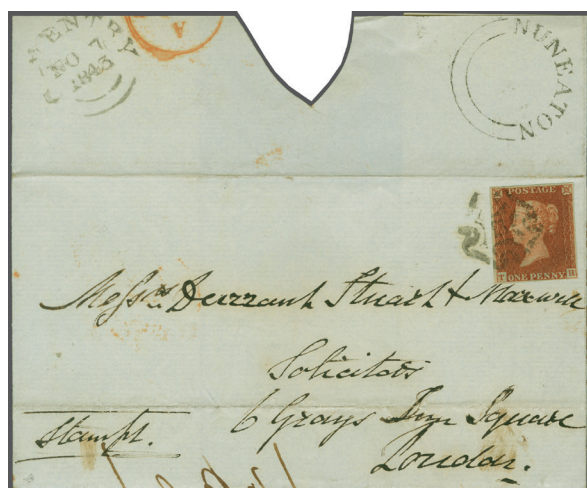 NO 7
1843
A
NUNEATON
POSTAGE
T
ONE PENNY
Messrs Durrant Stuart & Maxwell
Solicitors
6 Grays Inn Square
Stampt.
London.